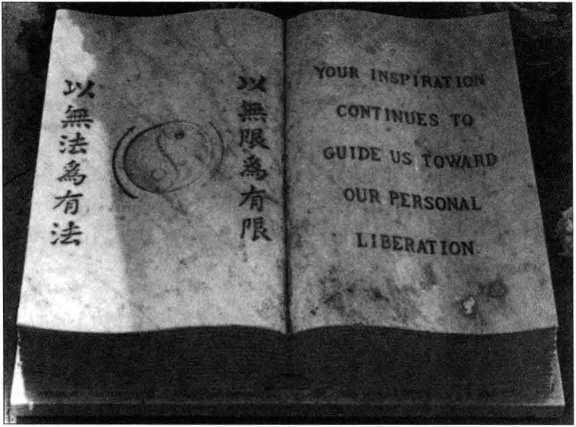 以無法為有法
以無限為有限
YOUR INSPIRATION
CONTINUES TO
GUIDE US TOWARD
OUR PERSONAL
LIBERATION